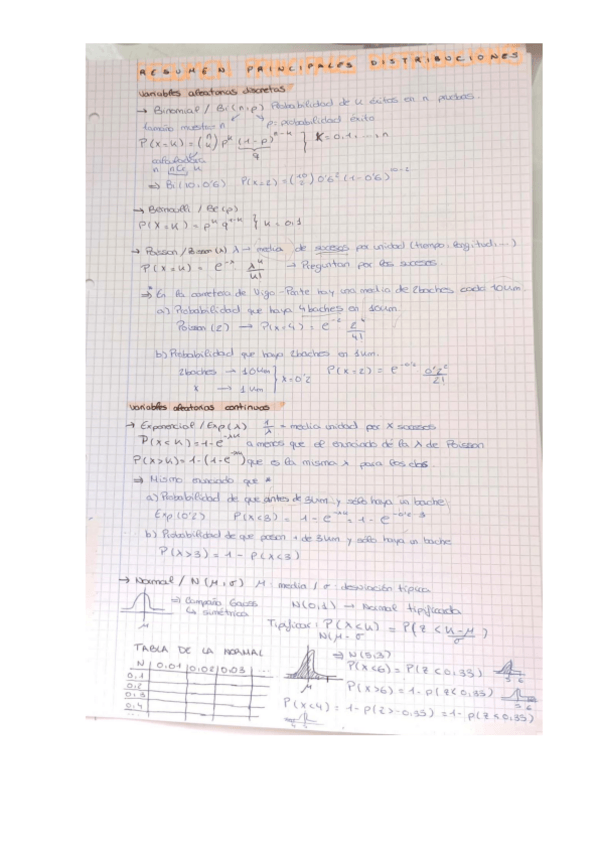 RESUMEN PRINCIPALES DISTRIBUCIONES
Variables aleatorias discretas
→ Binomial / Bi(n,p) Probabilidad de k éxitos en n pruebas.
tamaño muestra = n p = probabilidad éxito
P(X=k) = (n k) p^k (1-p)^n-k } k = 0,1,...,n
q
calculadora
n nCr k
⇒ Bi(10,0'6) P(X=2) = (10 2) 0'6² (1-0'6)^10-2
→ Bernoulli / Be(p)
P(X=k) = p^k q^1-k { k = 0,1
→ Poisson / λ → media de sucesos por unidad (tiempo, longitud,...)
P(X=k) = e^-λ λ^k/k! → Preguntan por los sucesos.
⇒* En la carretera de Vigo - hay una media de 2 baches cada 10 km.
a) Probabilidad que haya 4 baches en 10 km.
Poisson (2) → P(X=4) = e^-2 2^4/4!
b) Probabilidad que haya 2 baches en 1 km.
2 baches → 10 km } x = 0'2 P(X=2) = e^-0'2 0'2²/2!
x → 1 km
Variables aleatorias continuas
→ Exponencial / Exp(λ) 1/λ = media unidad por x sucesos
P(X<k) = 1-e^-λk a menos que el enunciado dé la λ de Poisson
P(X>k) = 1-(1-e^-λk) que es la misma λ para los dos.
⇒ Mismo enunciado que *
a) Probabilidad de que antes de 3 km. y sólo haya un bache
Exp(0'2) P(X<3) = 1-e^-λk = 1-e^-0'2·3
b) Probabilidad de que pasen + de 3 km. y sólo haya un bache
P(X>3) = 1 - P(X<3)
→ Normal / N(μ,σ) μ: media / σ: desviación típica
⇒ Campana Gauss N(0,1) → Normal tipificada
↳ simétrica
μ
Tipificar: P(X<k) = P(Z < k-μ/σ)
N(μ-σ
TABLA DE LA NORMAL
⇒ N(5,3)
N 0,01 0,02 0,03 ...
P(X<6) = P(Z<0,33) 5 6
0,1
0,2
μ
P(X>6) = 1-P(Z<0,33) 5 6
0,3
0,4
P(X<4) = 1-P(Z>-0,33) = 1-P(Z<0,33)
...